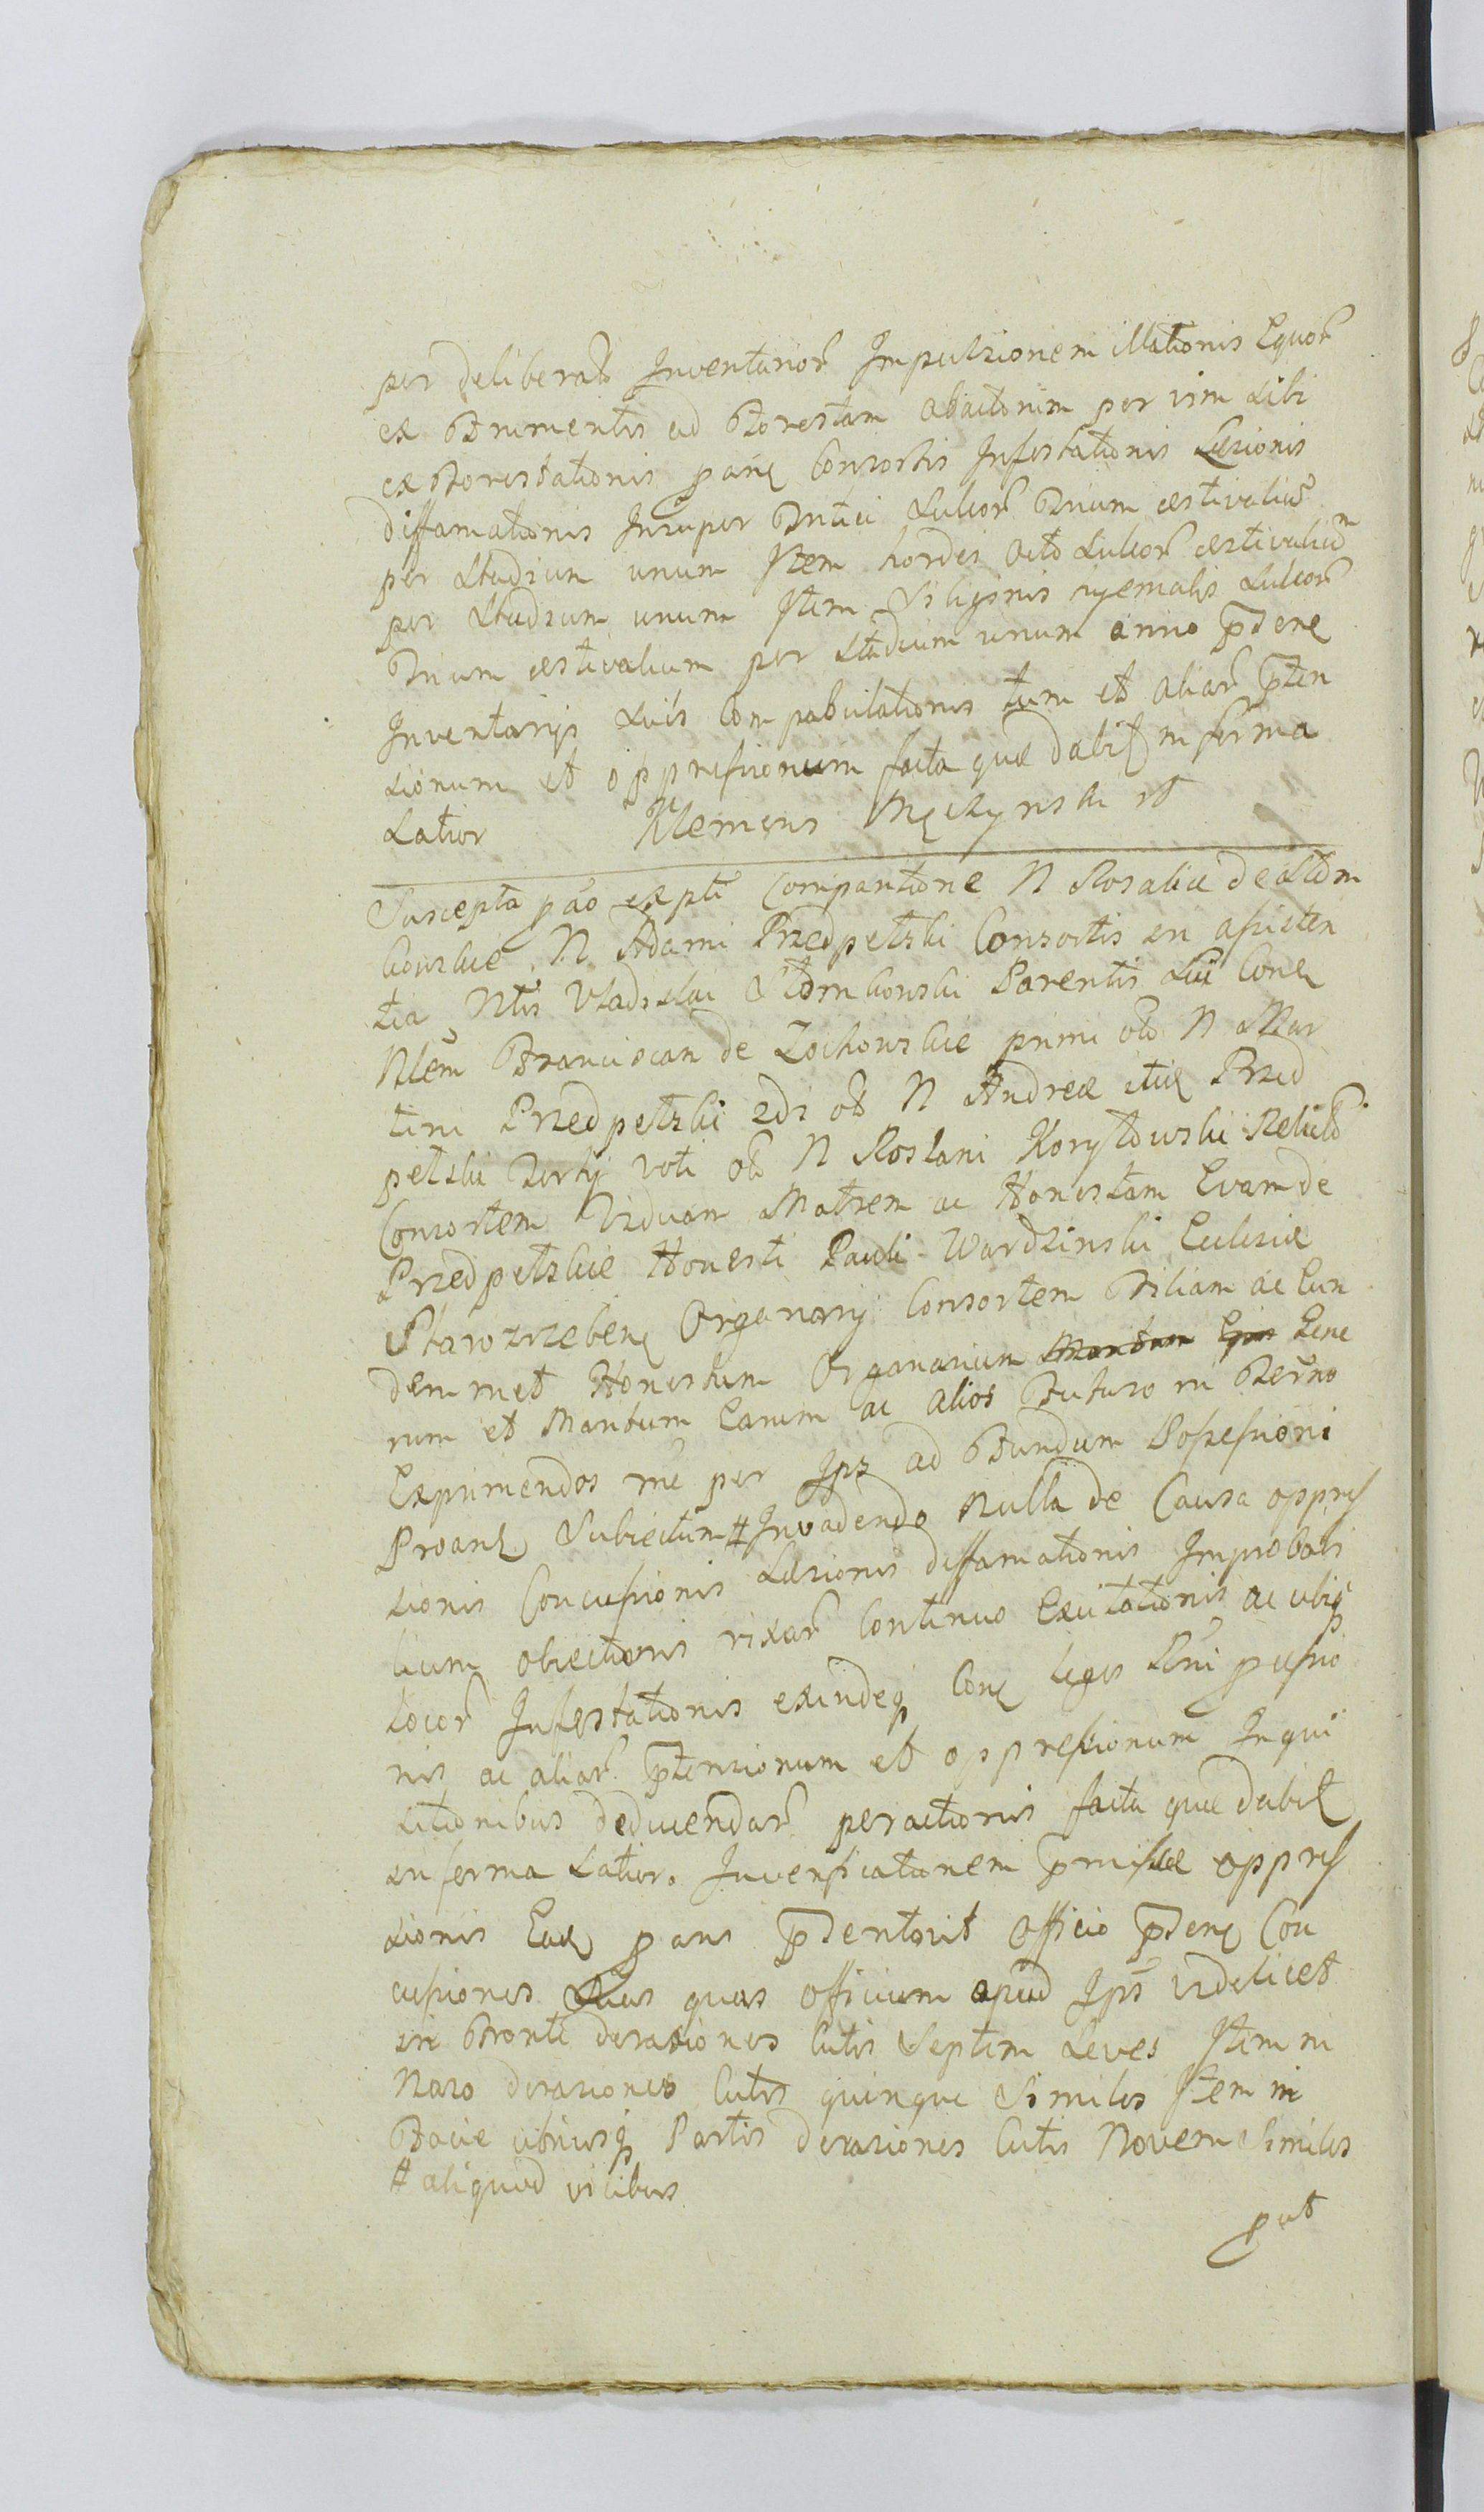 per deliberato Inventarior Impulsionem illationis Equor
ex Frumentis ad Forestam abactorum per vim Sibi
ex Forestationis Consortis Infestationis Læsionis
diffamationis Insuper Tritici Sulcor Trium æstivalium
per Stadium unum Item hordei octo Sulcor æstivalium
per Stadium unum Item Siliginis hyemalis Sulcor
Trium æstivalium per Stadium unum anno
Inventarijs Suis Compabulationis tum et aliar pten
sionum et oppressionum facta quæ dabit in forma
Latior Klemens
Suscepta ex pte Comparitione N Rosaliæ de
N Adami Przedpełski Consortis in assisten
tia Ntis Vladislai Parentis Sui
Nlem Franciscam de Zochowskie primi olo N Mar
tini Przedpełski 2di olo N Andreæ itid Przed
pełski Tertij voti olo N Roslani Korytowski Relictam
Consortem Viduam Matrem ac Honestam Evam de
Przedpełskie Honesti Pauli Wardzinski Ecclesiæ
Starozrzeben Organarij Consortem Filiam ac Eun
demmet Honestum Organarium Gene
rum et Maritum Earum ac alios Futuro in Termo
Exprimendos per Ips ad Fundum Possessioni
Proant Subiectum # Invadendo Nulla de Causa oppres
sionis Concussionis Læsionis diffamationis Improbabi
lium obiectionis rixar Continuo Excitationis ac ubiq
locor Infestationis exindeq legis
nis ac aliar ptensionum et oppressionum Inqui
sitionibus deducendar peractionis facta quæ dabit
in forma Latior. Inversificationem præmissæ oppres
sionis Ead pans pdentavit officio pdene Con
cussiones Suas quas officium apud Ips videlicet
in Fronte derasiones Cutis Septem Leves Item in
Naso derasiones Cutis quinque Similes Item in
Facie utriusq Partis derasiones Cutis Novem Similes
# aliquod vicibus
put